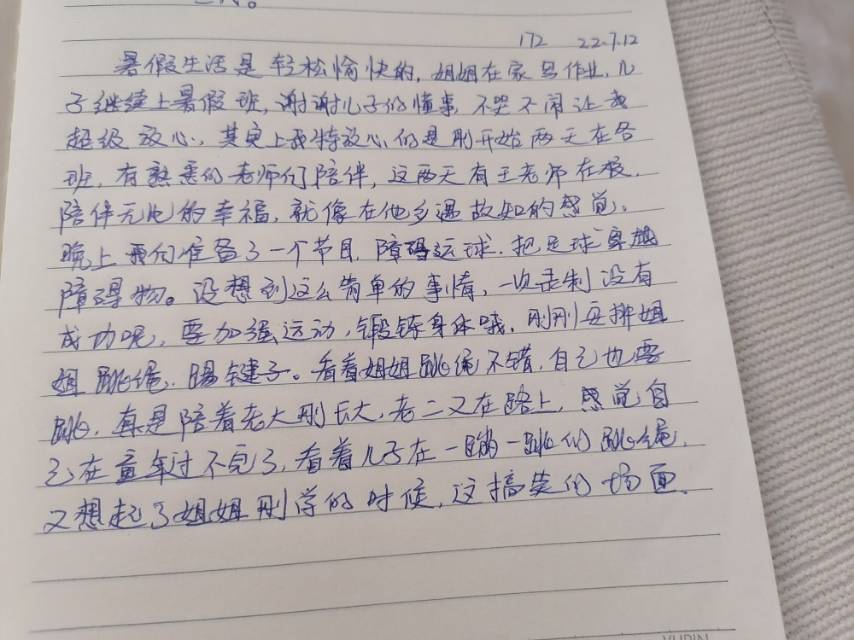 172 22.7.12
暑假生活是轻松愉快的,姐姐在家写作业,儿
子继续上暑假班,谢谢儿子的懂事,不哭不闹让我
超级放心,其实上我特放心,但是刚开始两天在各
班,有熟悉的老师们陪伴,这两天有王老师在
陪伴无比的幸福,就像在他乡遇故知的感觉。
晚上我们准备了一个节目,障碍运球,把足球
障碍物。没想到这么简单的事情,一次录制没有
成功呢,要加强运动,锻炼身体哦,刚刚安排姐
姐跳绳,踢键子。看着姐姐跳绳不错,自己也要
跳,真是陪着老大刚长大,老二又在路上,感觉自
己在童年过不完了,看着儿子在一蹦一跳的跳绳,
又想起了姐姐刚学的时候,这搞笑的场面,